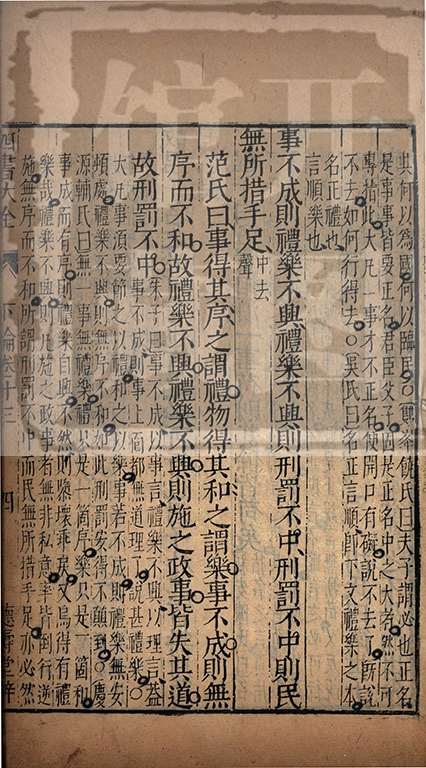 其何以爲國何以臨民○雙峯饒氏曰夫子謂必也正名
是事事皆要正名君臣父子固是正名中之大者然不可
專指此大凡一事才不正名便開口有礙說不去了所說
不去如何行得去○吳氏曰名正言順即下文禮樂之本
名正禮也
言順樂也
事不成則禮樂不興禮樂不興則刑罰不中刑罰不中則民
無所措手足中去聲
范氏曰事得其序之謂禮物得其和之謂樂事不成則無
序而不和故禮樂不興禮樂不興則施之政事皆失其道
故刑罰不中朱子曰事不成以事言禮樂不興以理言蓋
事不成則事上都無道理了說甚禮樂○
大凡事須要節之以禮和之以樂事若不成則禮樂無安
頓處禮樂不興則無序不和如此刑罰安得不顛到○慶
源輔氏曰無一事無禮樂禮只是一箇序樂只是一箇和
事成而有序則禮樂自興不然則隳壞乖戾又烏得有禮
樂哉禮樂不興則凡施之政事者無非私意率皆倒行逆
施無序而不和所謂刑罰不中而民無所措手足亦必然
四書大全 下論卷十三 四 德壽堂梓